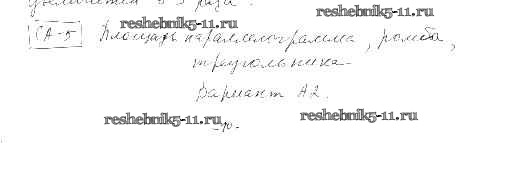 увеличится в 3 раза.
reshebnik5-11.ru
reshebnik5-11.ru
СА-5 Площадь параллелограмма, ромба,
треугольника
Вариант А2.
reshebnik5-11.ru
reshebnik5-11.ru